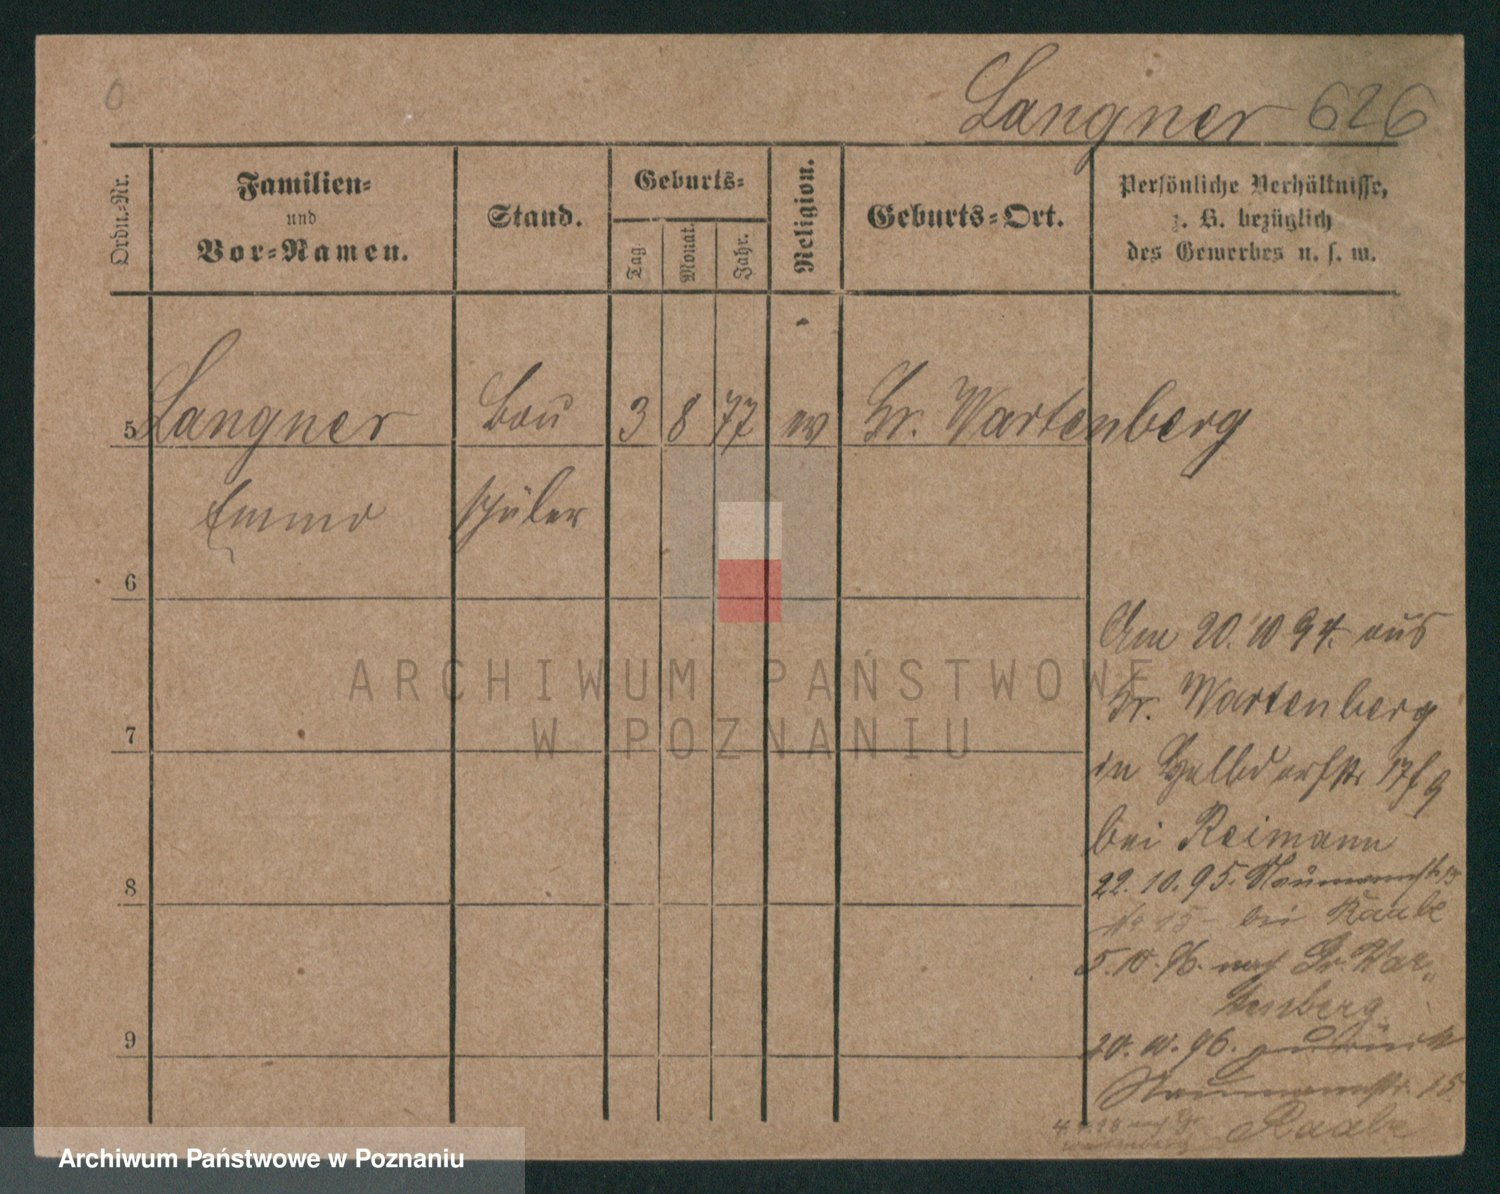 0
Langner 626
Ordn.-Nr.
Familien-
und
Vor-Namen.
Stand.
Geburts-
Tag.
Monat.
Jahr.
Religion.
Geburts-Ort.
Persönliche Verhältnisse,
z. B. bezüglich
des Gewerbes u. s. w.
5 Langner Bau 3 8 77 ev Gr. Wartenberg
schüler
6
7
8
9
Am 20. 10 94. aus
Gr. Wartenberg
in
bei Reimann
22. 10. 95. Naumannstr. 15
No 15 bei Raabe
5. 10. 96. nach Gr. War-
tenberg
20. 10. 96. zurück
Naumannstr. 15.
Raabe
ARCHIWUM PAŃSTWOWE
W POZNANIU
Archiwum Państwowe w Poznaniu